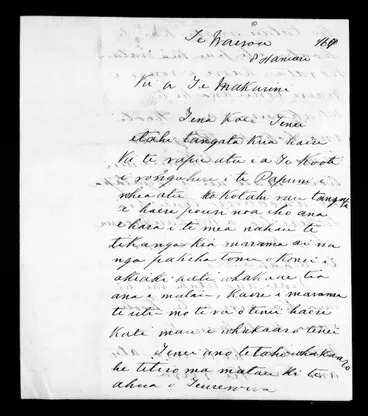 Te Wairoa 186
8 Hanuere
Ki a Te Makarini
Tena Koe. Tenei
etahi tangata kua haere
ki te rapu atu i a Te Kooti
i rongohere i te Papuni
whea atu ko kotahi rau tangata
e haere pouri noa iho ana
ehara i te mea nahau te
tikanga kia marama ai na
nga pakeha tonu o konei i
akiaki
ana e matau, kaore i marama
te utu mo te ra o tenei haere
Kati mau e whakaaro tenei
Tenei ano tetahi whakaaro
he titiro ma matau ki te
ahua o Teurewera